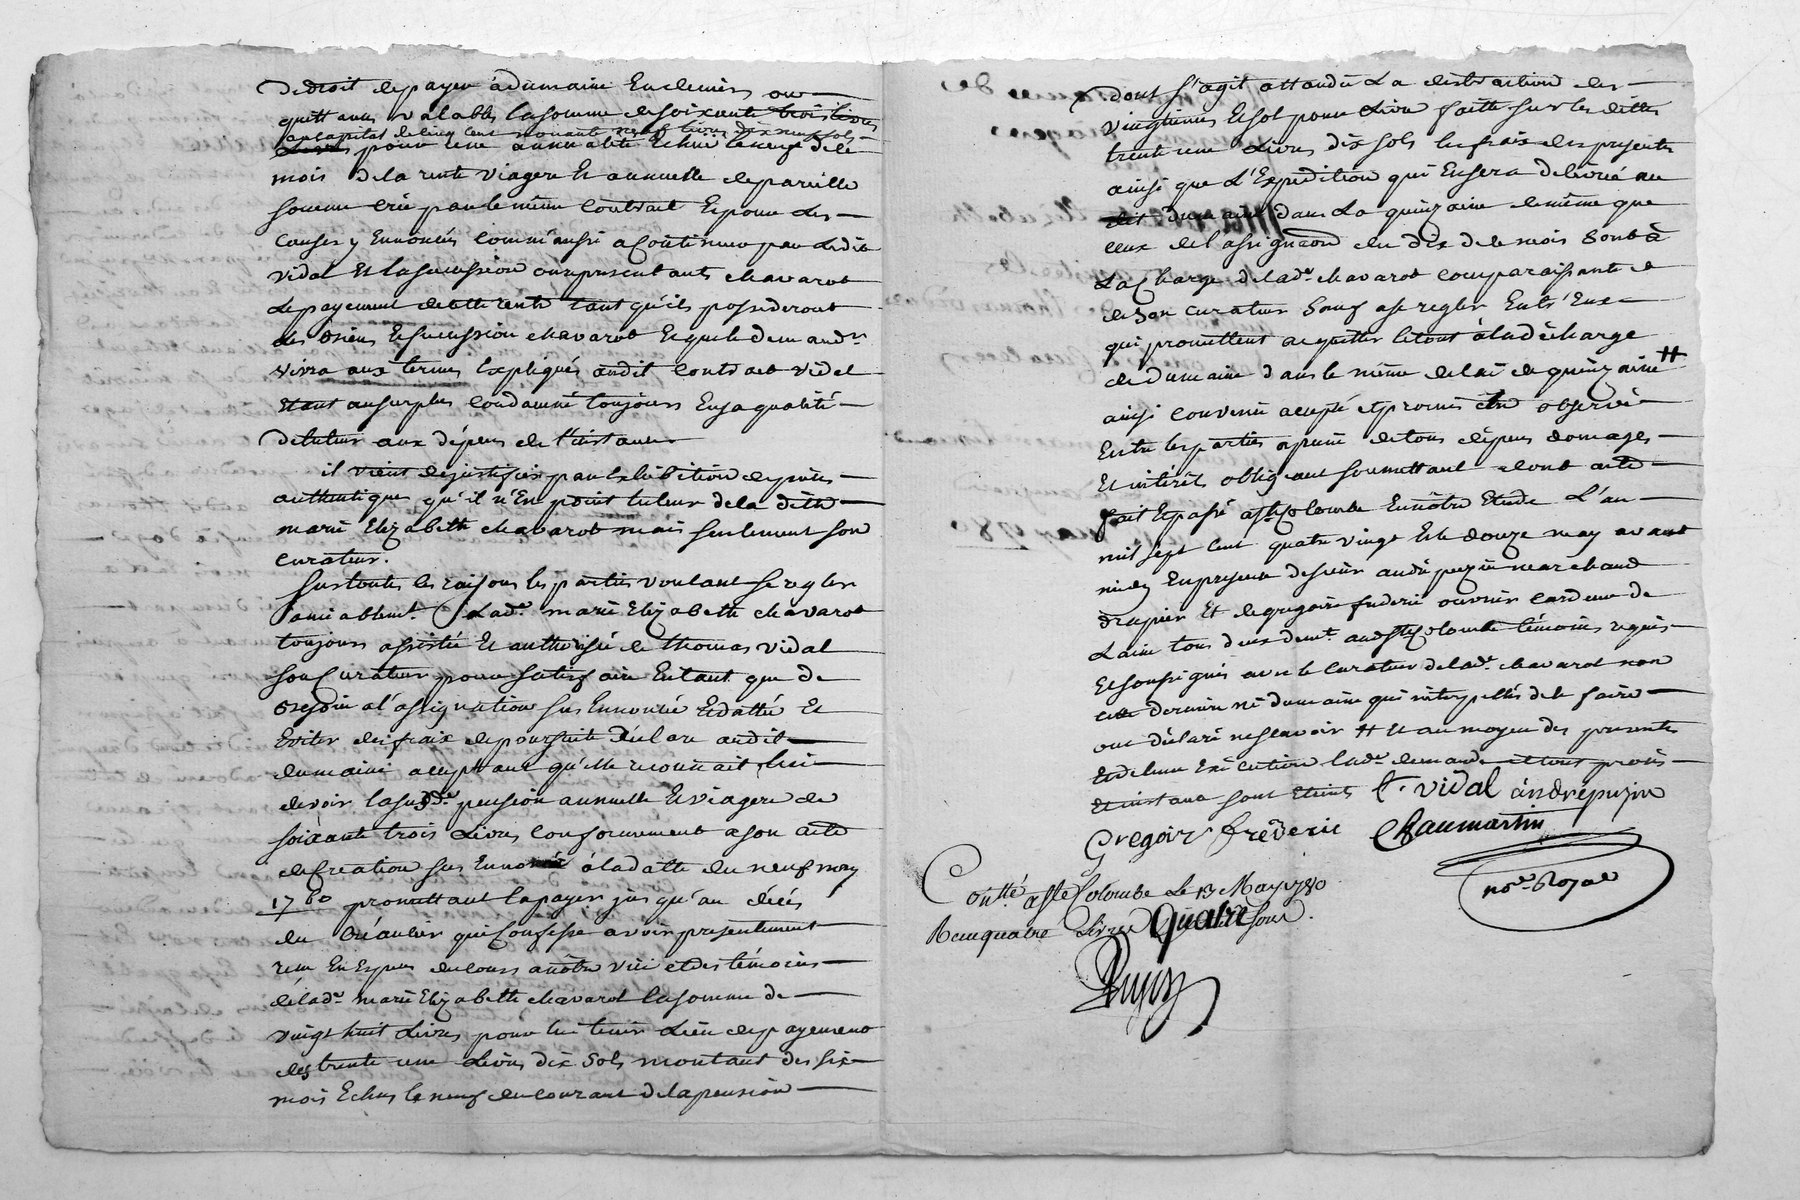 de droit de payer a dumaine En deniers ou
quittances valables la somme de soixante trois livres
au capital de cinq cent nonante neuf livres dix neuf sols
pour une annualité Echue le neuf de ce
mois de la rente viagere Et annuelle de pareille
somme crée par le même contrat Et pour les
causes y Ennoncées comm'aussi a continuer par ledit
vidal Et la sucession ou representants chavarot
le payement de cette rente tant qu'ils possederont
des biens de sucession chavarot Et que le demandr
vivra aux termes Expliqués audit contract vidal
Etant au surplus condamné toujours En sa qualité
de tuteur aux dépens de l'instance
il vient de justifier par Exhibition de pieces
authentiques qu'il n'En point tuteur de la ditte
marie Elizabeth chavarot mais seulement son
curateur.
Sur toutes les raisons les parties voulant se regler
amiablemt. Lade. marie Elizabeth chavarot
toujours assistée Et authorisée de thomas vidal
son Curateur pour satisfaire En tant que de
besoin a l'assignation sus Ennoncée Et dattée Et
Eviter des frais de poursuitte déclare audit
dumaine acceptant qu'elle reconnait lui
devoir la susde. pension annuelle Et viagere de
soixante trois Livres conformement a son acte
de Creation sus Ennoncé à la datte du neuf may
1760 promettant la payer jusqu'au décés
du Créancier qui Confesse avoir presentement
reçu En Especes du cours a nôtre vüe et des témoins
de lade. marie Elizabeth chavarot la somme de
vingt huit Livres pour lui tenir Lieu de payement
des trente une Livres dix sols montant des six
mois Echus le neuf du courant de la pension
dont s'agit attendu La distraction des
vingtiemes Et sol pour Livre faitte sur les dittes
trente une Livres dix sols les frais des presentes
ainsi que L'Expedition qui En sera delivrée au
dit dumaine dans La quinzaine de même que
ceux de l'assignaõn du dix de ce mois sont à
La Charge de lade. chavarot comparaissante et
de son curateur sauf a se regler Entr'Eux
qui promettent acquitter le tout à la décharge
de dumaine dans le même delai de quinzaine #
ainsi convenu accepté et promis être observé
Entre les parties a peine de tous dépens domages
Et intérêts obligeant soumettant dont acte
fait Et passé a Ste Colombe En nôtre Etude L'an
mil sept cent quatre vingt Et le douze may avant
midy En presence de sieur andré puzin marchand
drapier Et de gregoire frederic ouvrier cardeur de
Laine tous deux demt. audt Ste Colombe témoins requis
Et soussignés avec le curateur de lade. chavarot non
cette derniere ni dumaine qui interpellés de le faire
ont déclaré ne sçavoir # Et au moyen des presentes
Et de leur Exécution lade. demande et tous procés
et instance sont Eteints t. vidal andrépuzin
Gregoire frêderic Chaumartin
nore. Royal
Contté a Ste Colombe Le 13 May 1780
Reçu quatre Livres quatre sous.